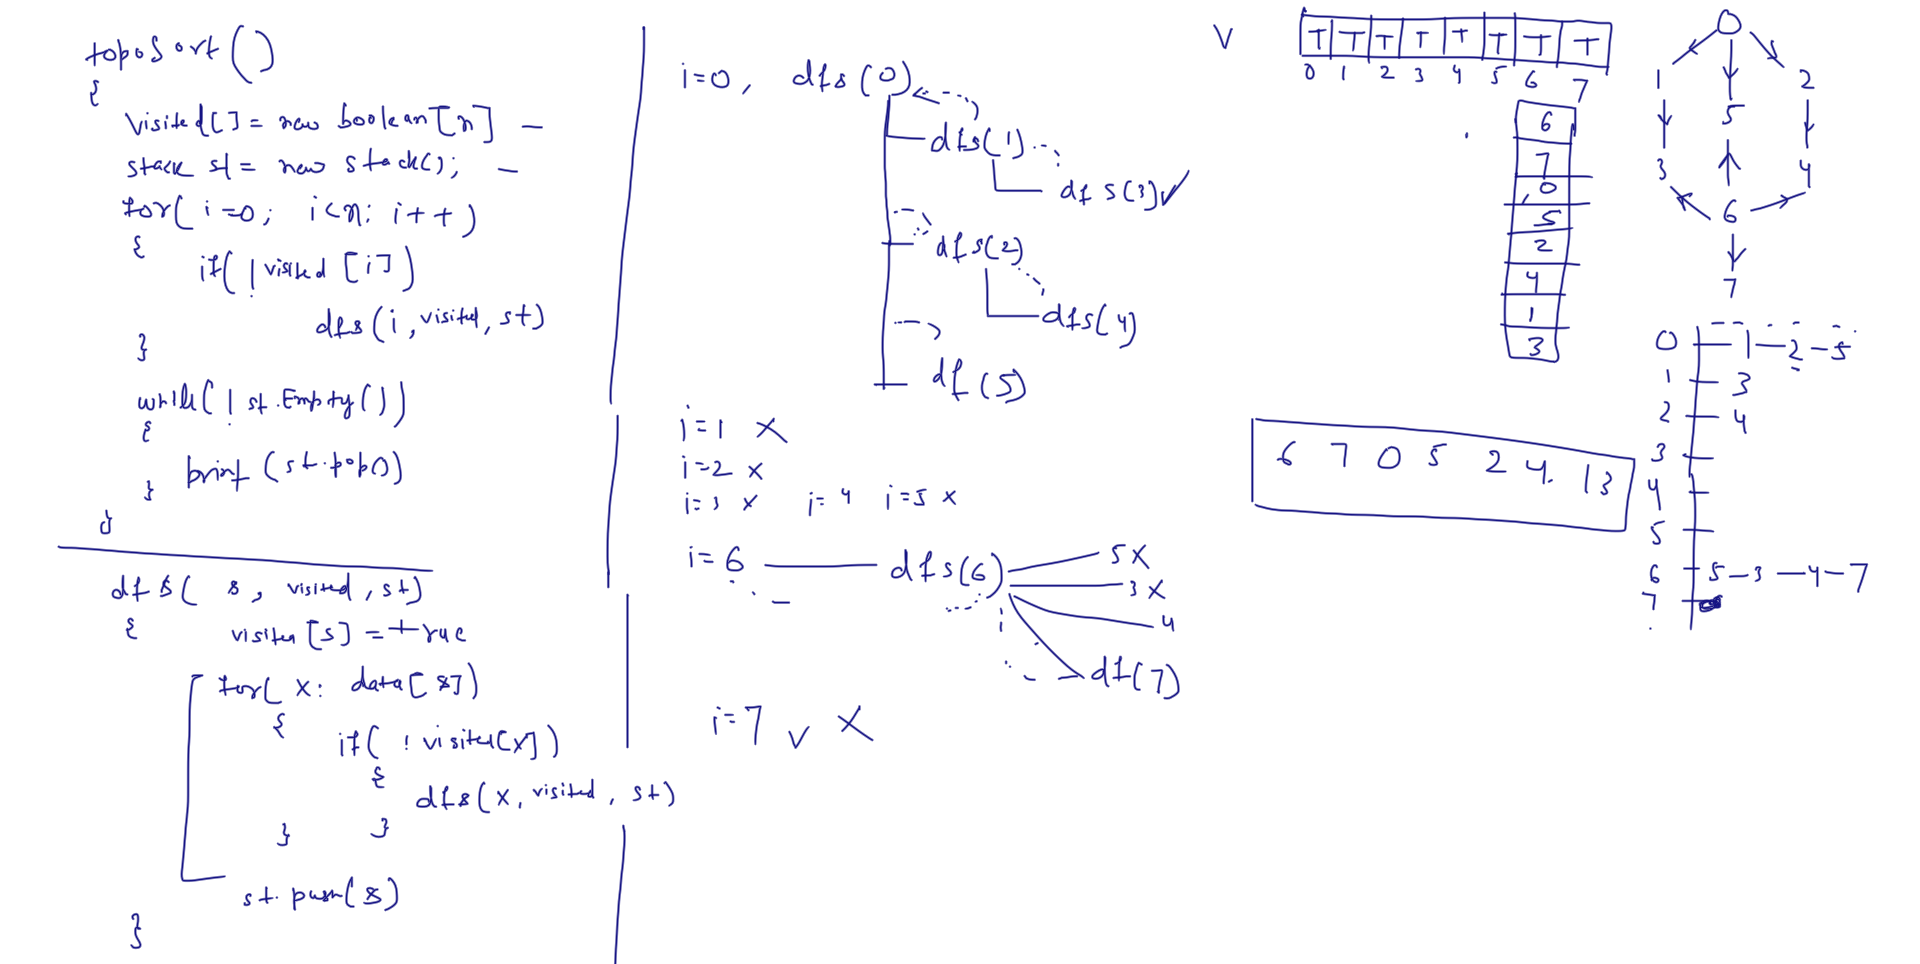 topoSort()
{
visited[] = new boolean[n] -
stack st = new stack(); -
for( i=0; i<n; i++)
{
if( ! visited [i])
dfs (i, visited, st)
}
while( ! st.Empty())
{
print (st.pop())
}
}
dfs( s, visited, st)
{
visited [s] = true
for( x: data[s])
{
if( ! visited[x])
{
dfs(x, visited, st)
}
}
st.push(s)
}
i=0, dfs(0)
dfs(1)
dfs(3) ✓
dfs(2)
dfs(4)
df(5)
i=1 X
i=2 X
i=3 X i=4 i=5 X
i=6 dfs(6)
5 X
3 X
4
df(7)
i=7 v X
V T T T T T T T T
0 1 2 3 4 5 6 7
6
7
0
5
2
4
1
3
6 7 0 5 2 4. 1 3
0
1 2
5
3 4
6
7
0 - 1 - 2 - 5
1 - 3
2 - 4
3
4
5
6 5 - 3 - 4 - 7
7